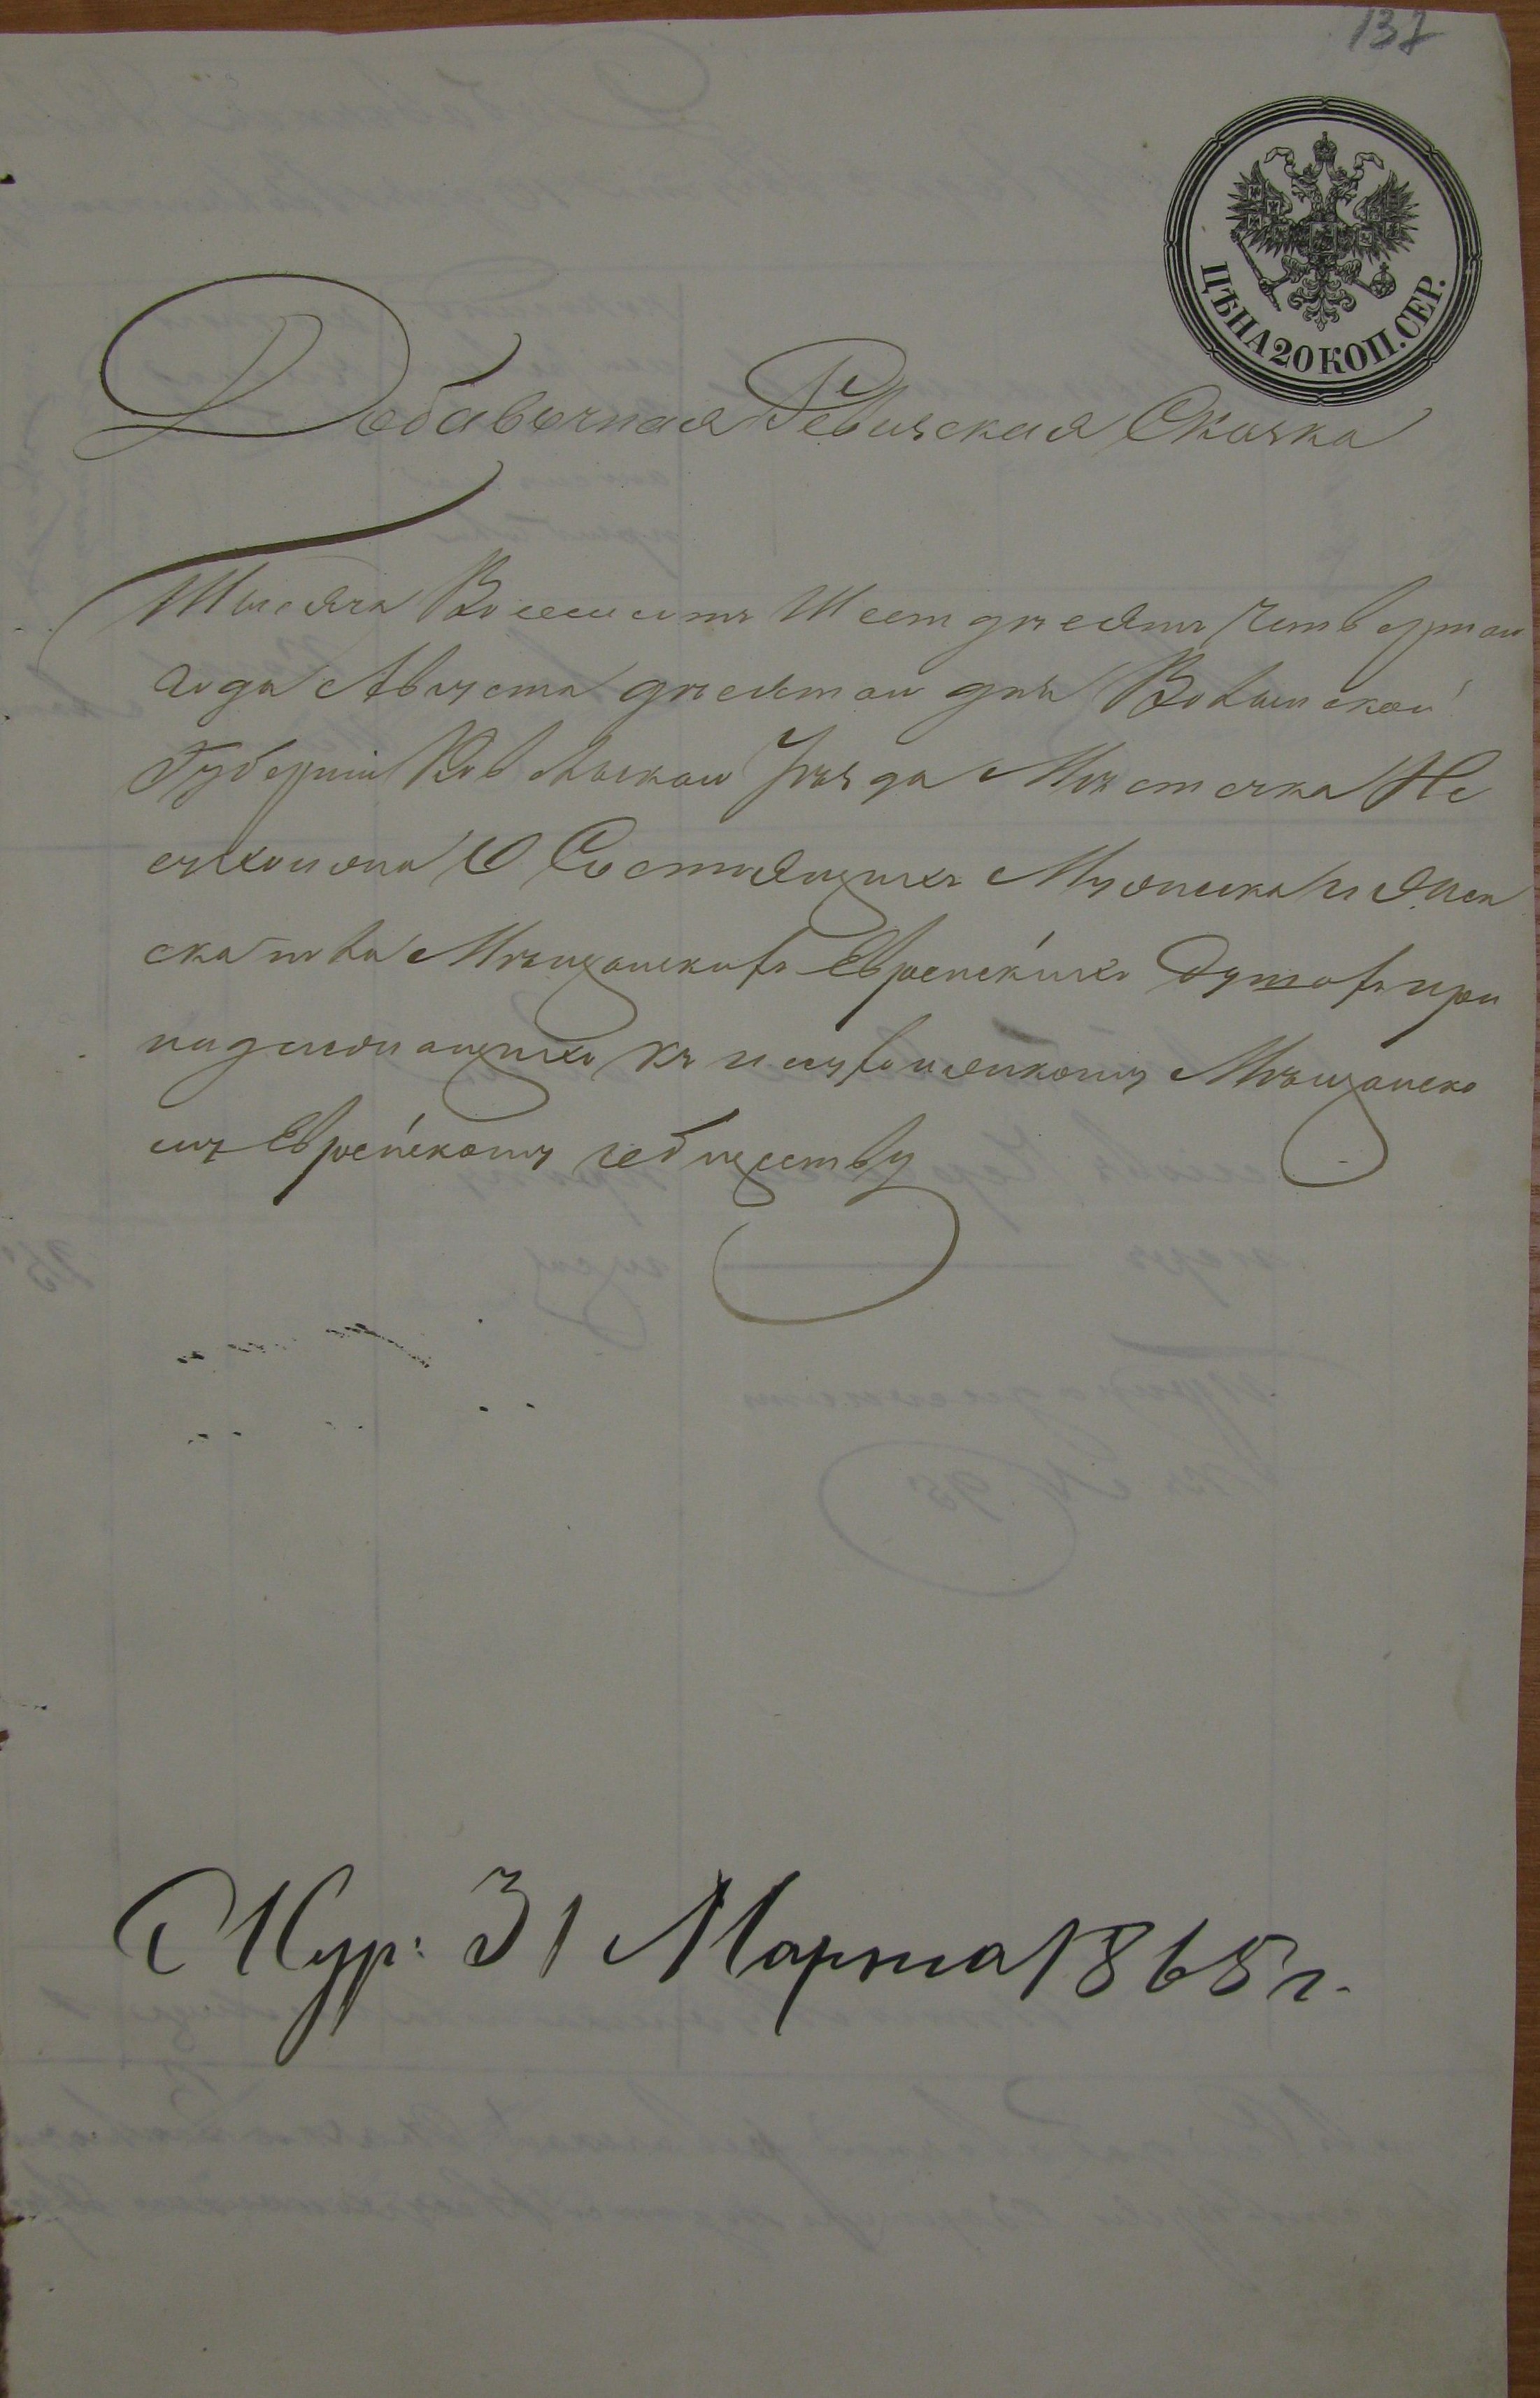 137
ЦѢНА 20 КОП. СЕР.
Добавочная Ревизская Сказка
Тысяча Восемсотъ Шестдесятъ Четвертаго
года Августа десятаго дня Волынской
Губерніи Ковельскаго Уѣзда Мѣстечка Не
сухоижа О Состоящихъ Мужеска и Женска
пола Мѣщанскихъ Еврейскихъ душахъ при
надлежащихъ къ Мѣщанско
му Еврейскому обществу
Жур: 31 Марта 1865 г.